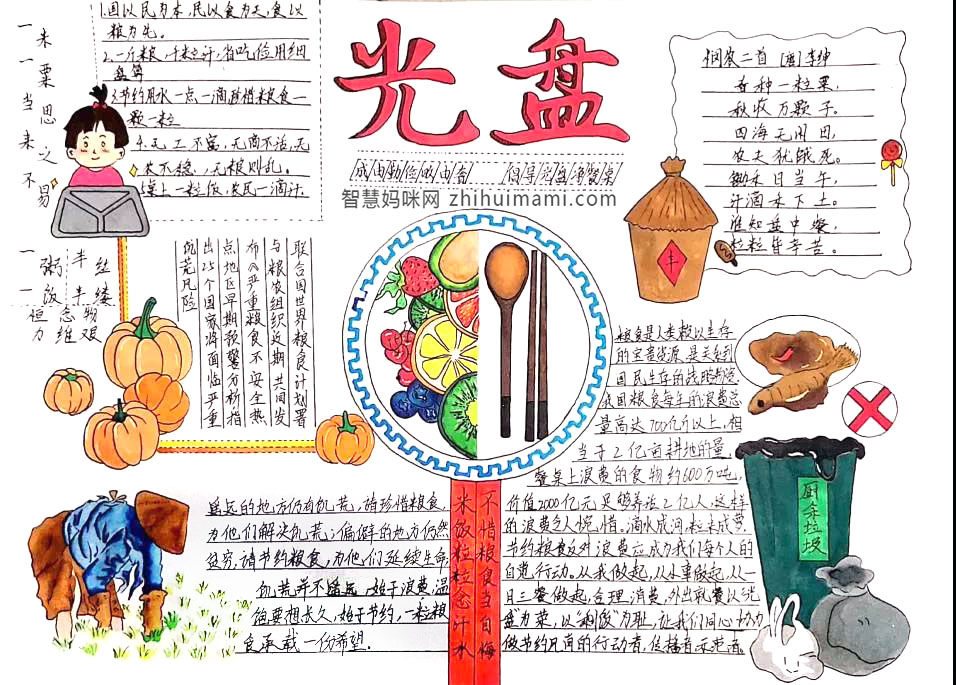 光盘
智慧妈咪网 zhihuimami.com
一米一粟当思来之不易
1.国以民为本,民以食为天,食以
粮为先。
2.一斤粮,千粒汗,省吃俭用细
盘算
3.节约用水一点一滴珍惜粮食一
颗一粒
4.无工不富,无商不活,无
农不稳,无粮则乱。
桌上一粒饭,农民一滴汗
一粥一饭
半丝半缕
恒念物力维艰
联合国世界粮食计划署
与粮农组织近期共同发
布《严重粮食不安全热
点地区早期预警分析指
出25个国家将面临严重
饥荒风险
悯农二首 [唐] 李绅
春种一粒粟,
秋收万颗子。
四海无闲田,
农夫犹饿死。
锄禾日当午,
汗滴禾下土。
谁知盘中餐,
粒粒皆辛苦。
丰
粮食是人类赖以生存
的宝贵资源,是关系到
国民生存的战略物资
我国粮食每年的浪费总
量高达700亿斤以上,相
当于2亿亩耕地的量,
餐桌上浪费的食物约600万吨,
价值2000亿元足够养活2亿人,这样
的浪费令人惋惜。滴水成河,粒米成箩
节约粮食反对浪费应成为我们每个人的
自觉行动。从我做起,从小事做起,从一
日三餐做起,合理消费,外出就餐以"光
盛"为荣,以"剩饭"为耻,让我们同心协力
做节约风尚的行动者,传播者示范者。
厨余垃圾
遥远的地方仍有饥荒,请珍惜粮食,
为他们解决饥荒;偏僻的地方仍然
贫穷,请节约粮食,为他们延续生命,
饥荒并不遥远,始于浪费,温
饱要想长久,始于节约,一粒粮
食承载一份希望.
不惜粮食当自悔
米饭粒粒念汗水